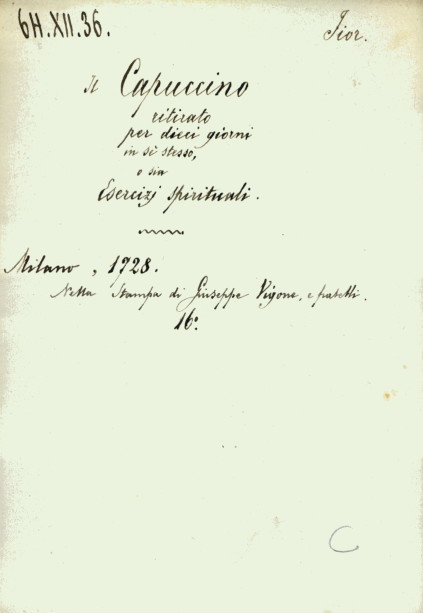 6H.XII.36.
Fior.
Il Capuccino
ritirato
per dieci giorni
in sè stesso,
o sia
Esercizj spirituali.
Milano, 1728.
Nella Stampa di Giuseppe Vigone, e fratelli.
16°.
C